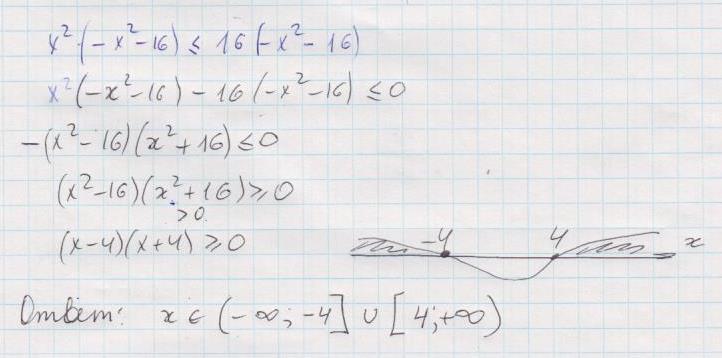 x²·(-x²-16) ≤ 16(-x²-16)
x²(-x²-16) - 16(-x²-16) ≤ 0
-(x²-16)(x²+16) ≤ 0
(x²-16)(x²+16) ≥ 0
>0
(x-4)(x+4) ≥ 0
-4 4 x
Ответ: x ∈ (-∞; -4] ∪ [4; +∞)